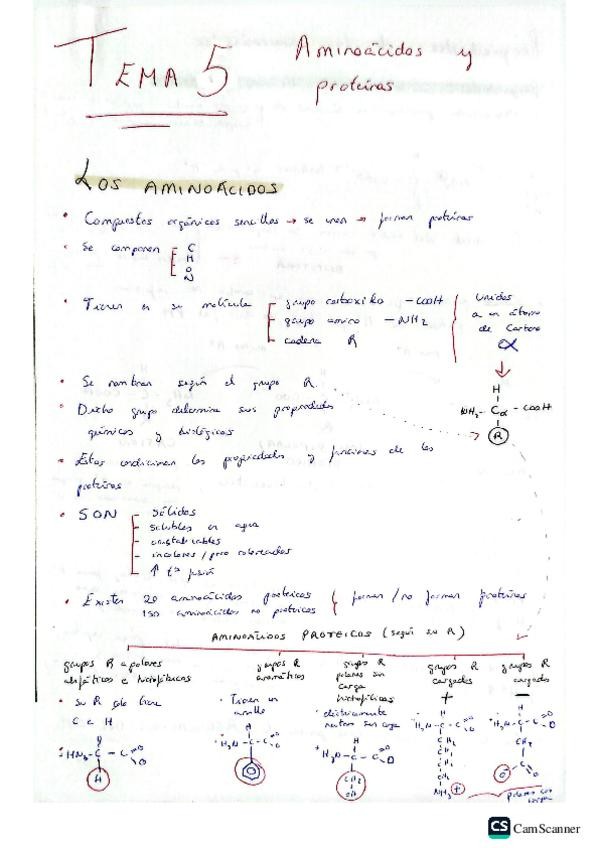 TEMA 5 Aminoácidos y
proteínas
LOS AMINOÁCIDOS
• Compuestos orgánicos sencillos → se unen → forman proteínas
• Se componen C
H
O
N
• Tienen en su molécula grupo carboxilo -COOH
grupo amino -NH2
cadena R
Unidos
a un átomo
de Carbono
α
H
NH2- Cα - COOH
R
• Se nombran según el grupo R.
• Dicho grupo determina sus propiedades
químicas y biológicas
• Estas condicionan las propiedades y funciones de las
proteínas
• SON - sólidos
- solubles en agua
- cristalizables
- incoloros / poco coloreados
- ↑ tª fusión
• Existen 20 aminoácidos proteicos
150 aminoácidos no proteicos
forman / no forman proteínas
AMINOÁCIDOS PROTEICOS (según su R)
grupos R apolares
alifáticos e hidrofóbicos
• su R solo tiene
C e H
H
C - C
H
grupos R
aromáticos
• Tienen un
anillo
H3N - C - C
grupos R
polares sin
carga
hidrofílicos
• eléctricamente
H3N - C - C
CH2
OH
grupos R
cargados
+
H3N - C - C
CH2
CH2
CH2
CH2
NH3 +
grupos R
cargados
-
H3N - C - C
CH2
C
polares con
carga
CS CamScanner